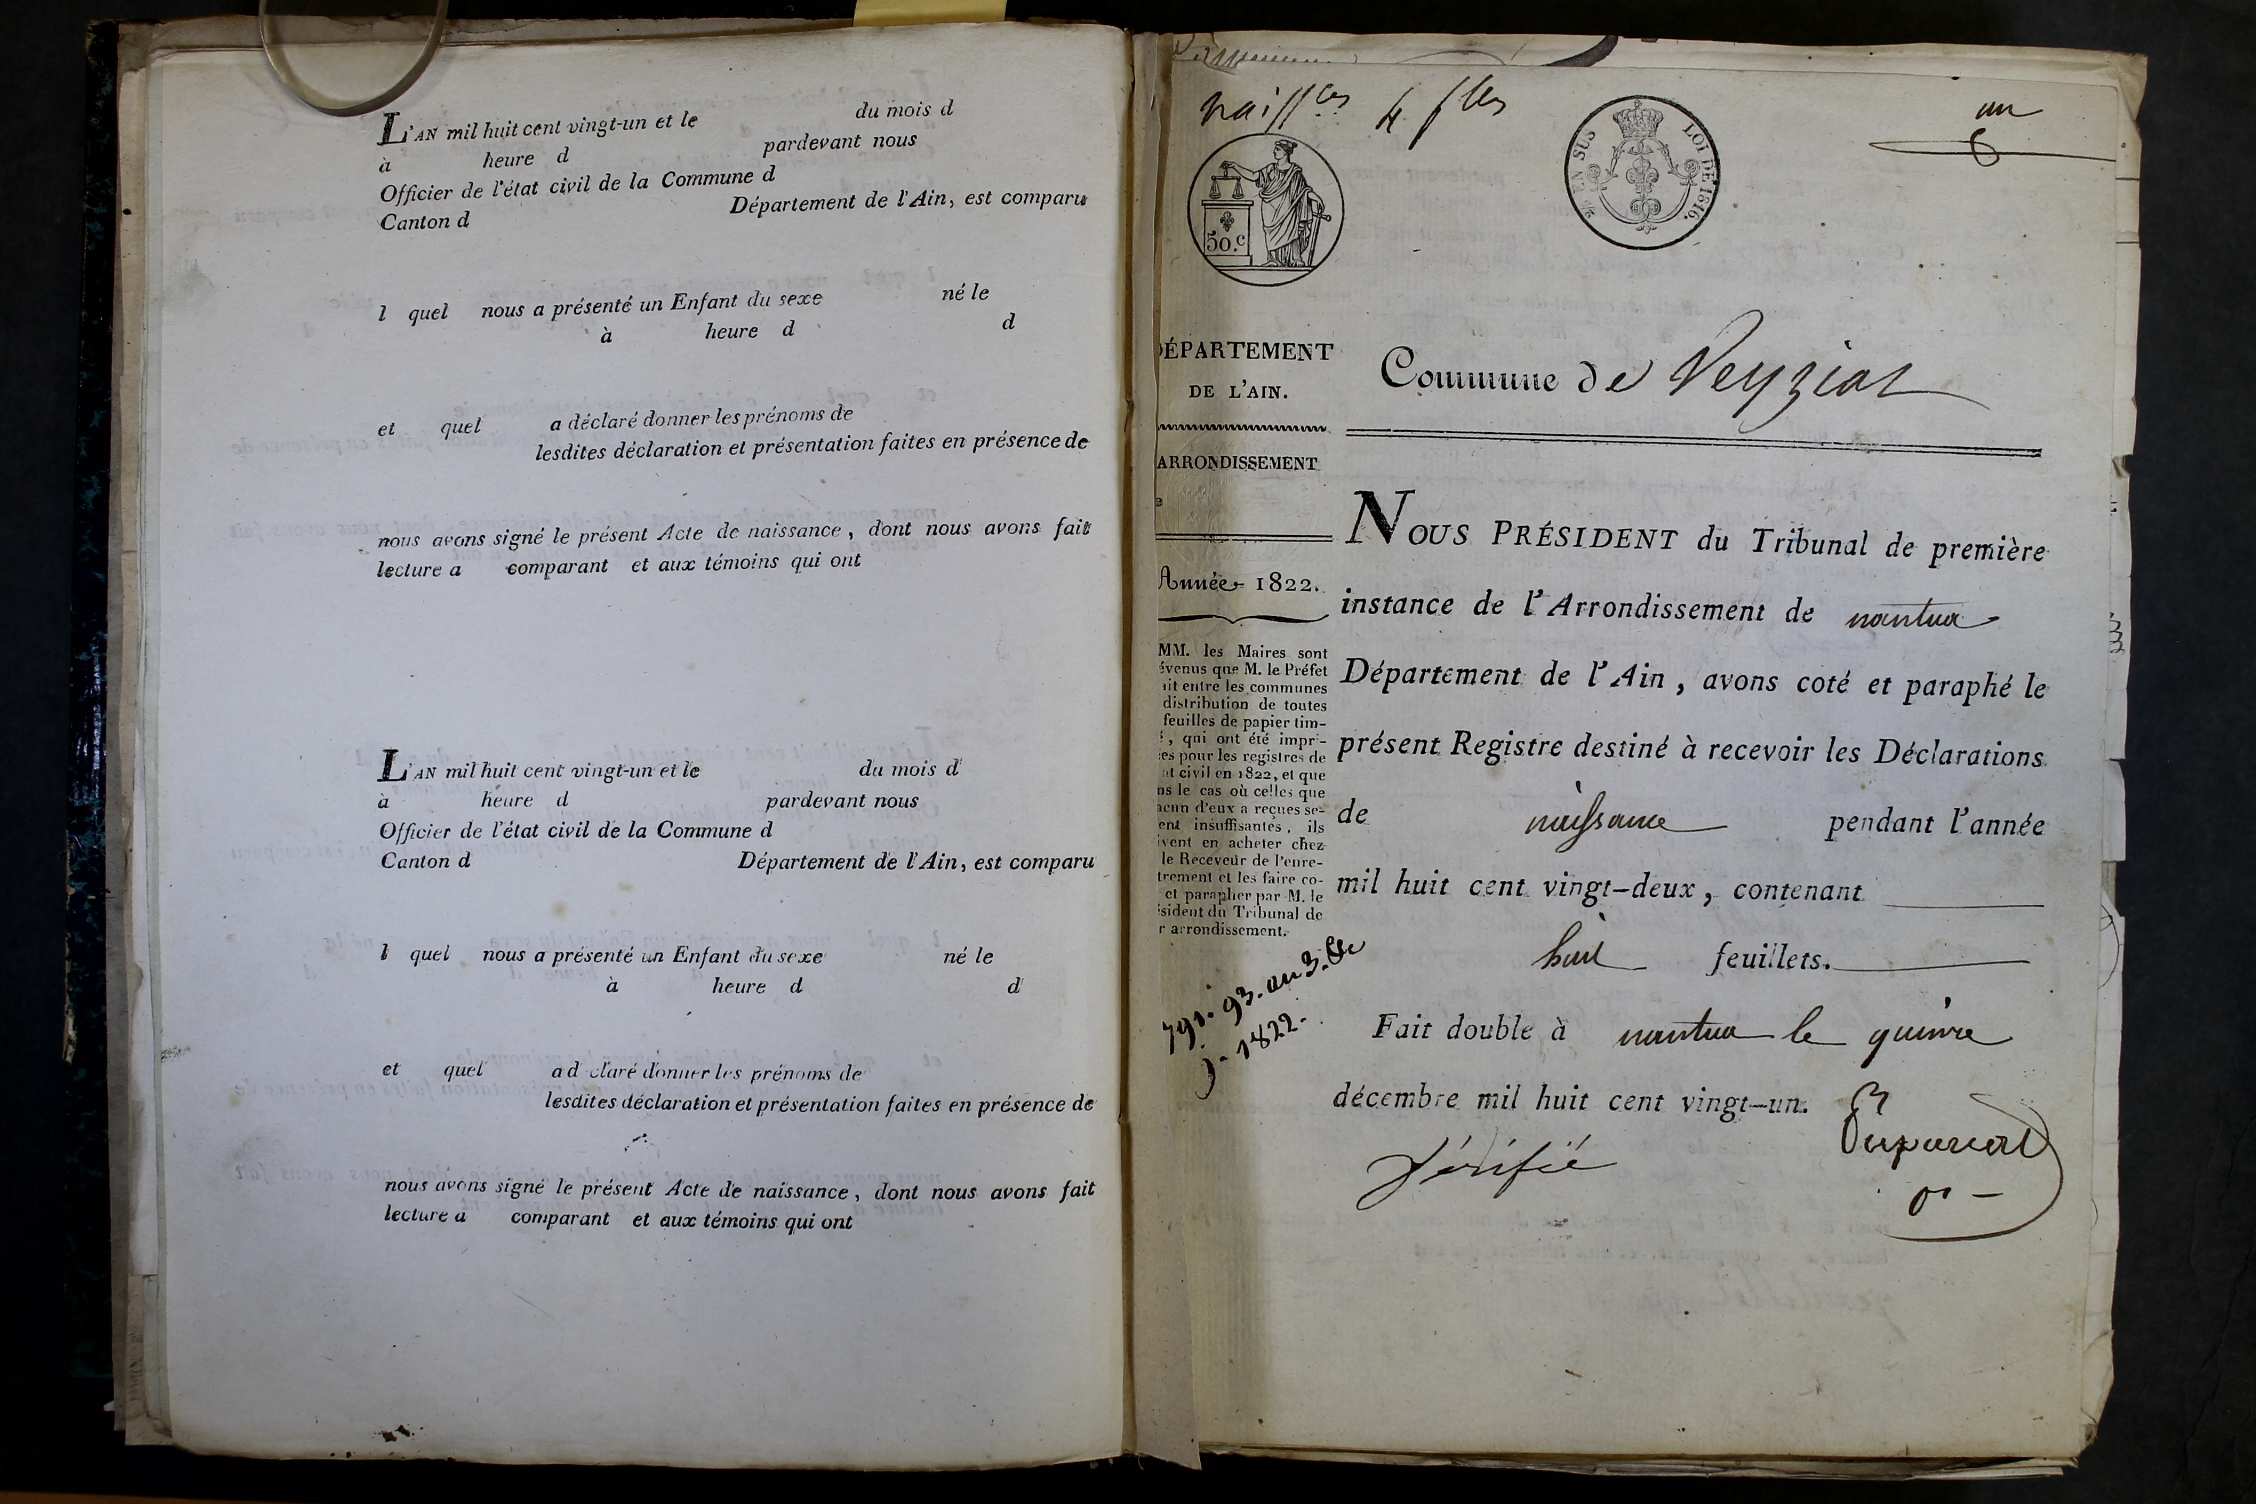 L'AN mil huit cent vingt-un et le du mois d
à heure d pardevant nous
Officier de l'état civil de la Commune d
Canton d Département de l'Ain, est comparu
l quel nous a présenté un Enfant du sexe né le
à heure d d
et quel a déclaré donner les prénoms de
lesdites déclaration et présentation faites en présence de
nous avons signé le présent Acte de naissance, dont nous avons fait
lecture a comparant et aux témoins qui ont
L'AN mil huit cent vingt-un et le du mois d
à heure d pardevant nous
Officier de l'état civil de la Commune d
Canton d Département de l'Ain, est comparu
l quel nous a présenté un Enfant du sexe né le
à heure d d
et quel a déclaré donner les prénoms de
lesdites déclaration et présentation faites en présence de
nous avons signé le présent Acte de naissance, dont nous avons fait
lecture a comparant et aux témoins qui ont
naiss.ces 4 f.lles
un
EN SUS LOI DE 1816.
50.c
DÉPARTEMENT
DE L'AIN.
ARRONDISSEMENT
Année 1822.
MM. les Maires sont
évenus que M. le Préfet
it entre les communes
distribution de toutes
feuilles de papier tim-
é, qui ont été impri-
es pour les registres de
at civil en 1822, et que
ns le cas où celles que
acun d'eux a reçues se-
ent insuffisantes, ils
ivent en acheter chez
le Receveur de l'enre-
trement et les faire co-
et parapher par M. le
ésident du Tribunal de
r arrondissement.
1822.
Commune de Veyziat
NOUS PRÉSIDENT du Tribunal de première
instance de l'Arrondissement de nantua
Département de l'Ain, avons coté et paraphé le
présent Registre destiné à recevoir les Déclarations
de naissance pendant l'année
mil huit cent vingt-deux, contenant
huit feuillets.
Fait double à nantua le quinze
décembre mil huit cent vingt-un.
Vérifié